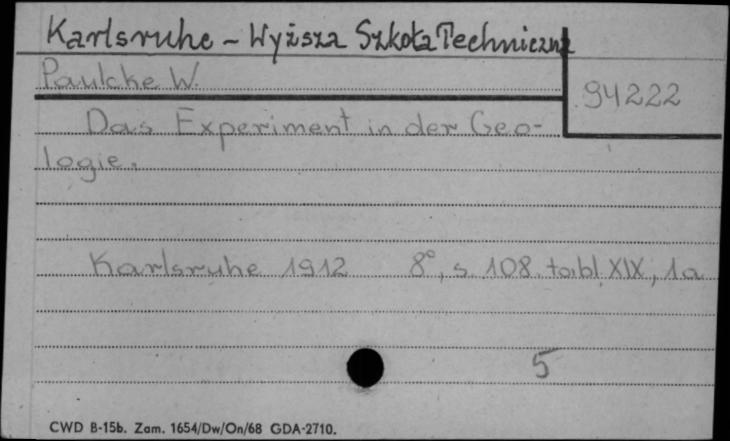 Karlsruhe – Wyższa Szkoła Techniczna
Paulcke W.
94222
Das Experiment in der Geo-
logie.
Karlsruhe 1912 8°, s. 108. tabl. XIX, 1a
5
CWD B-15b. Zam. 1654/Dw/On/68 GDA-2710.